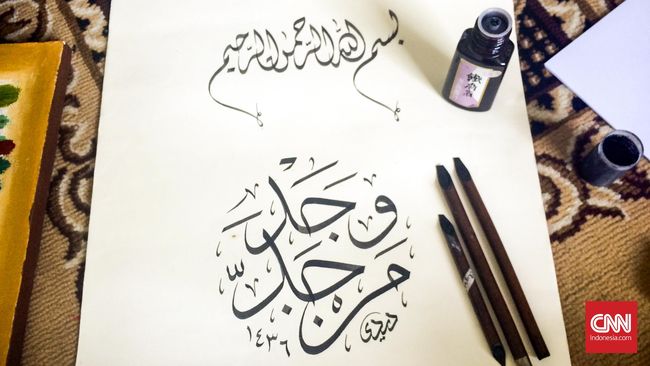 بسم الله الرحمن الرحيم
مَنْ جَدَّ
وَجَدَ
ديدي
١٤٣٦
CNN
Indonesia.com